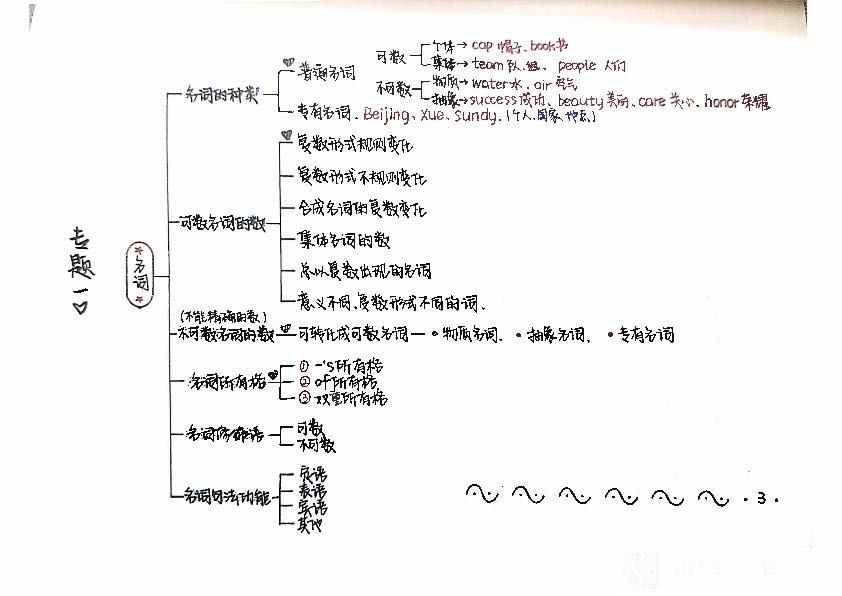 专题一
*名词*
名词的种类
普通名词
可数
个体→cap 帽子、book书
集体→team 队、组、people 人们
不可数
物质→water水、air空气
抽象→success成功、beauty美丽、care关心、honor荣耀
专有名词、Beijing、Xue、Sundy.(个人、国家、地点)
可数名词的数
复数形式规则变化
复数形式不规则变化
合成名词的复数变化
集体名词的数
总以复数出现的名词
意义不同、复数形式不同的词、
(不能精确的数)
不可数名词的数
可转化成可数名词
•物质名词、 •抽象名词、 •专有名词
名词所有格
① -'s所有格
② of所有格
③ 双重所有格
名词修饰语
可数
不可数
名词句法功能
主语
表语
宾语
其他
· 3 ·